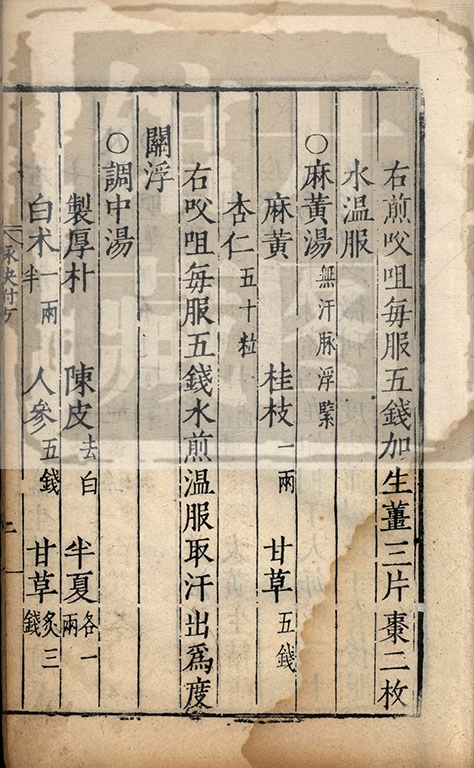 右煎㕮咀每服五錢加生薑三片棗二枚
水温服
○麻黄湯無汗脉浮緊
麻黄 桂枝一兩 甘草五錢
杏仁五十粒
右㕮咀每服五錢水煎温服取汗出爲度
關浮
○調中湯
製厚朴 陳皮去白 半夏各一兩
白术一兩半 人參五錢 甘草炙三錢